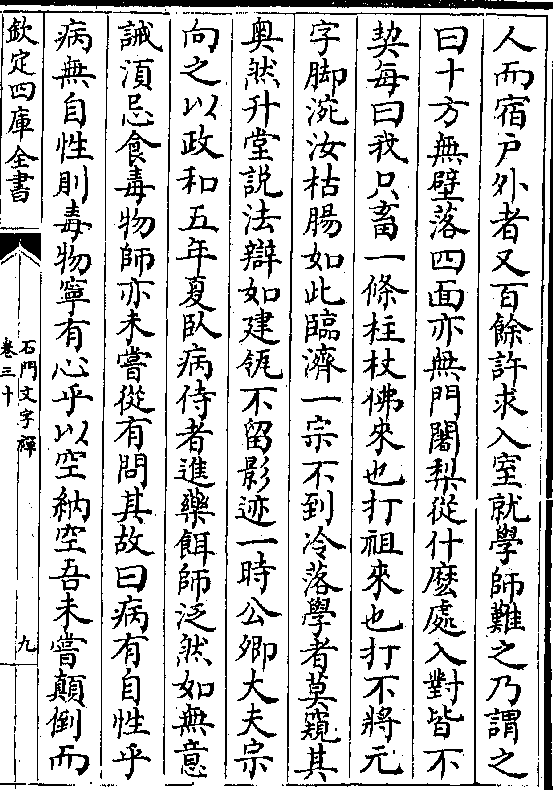 人而宿户外者又百餘許求入室就學師難之乃謂之
曰十方無壁落四面亦無門闍棃從什麽處入對皆不
契每曰我只畜一條柱杖佛來也打祖來也打不將元
字脚涴汝枯腸如此臨濟一宗不到冷落學者莫窺其
奥然升堂説法辯如建瓴不留影迹一時公卿大夫宗
向之以政和五年夏臥病侍者進藥餌師泛然如無意
誡湏忌食毒物師亦未嘗從有問其故曰病有自性乎
病無自性則毒物寧有心乎以空納空吾未嘗顛倒而
欽定四庫全書
石門文字禪
卷三十
九